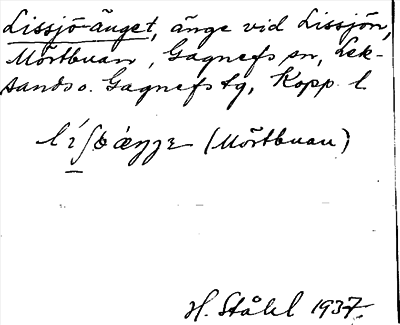 Lissjö-änget, änge vid Lissjön,
Mörtbuan, Gagnefs sn, Lek-
sands o. Gagnefs tg, Kopp. l
(Mörtbuan)
H. Ståhl 1937.